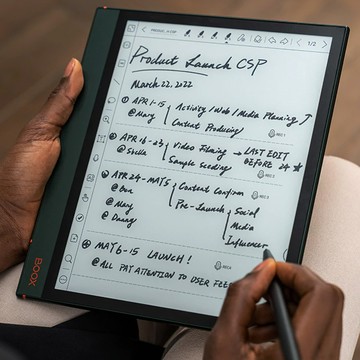 PRODUCT..H CSP
1/2
Product Launch CSP
March 22, 2022
① APR 1-15 Activity / Web / Media Planning
@Mary Content Producing REC 1
② APR 16-23 Video Filming → LAST EDIT
@Stella Sample Seeding BEFORE 24 ★
REC 2
③ APR 24-MAY 5 Content Confirm
@Ben Pre-Launch Social
@Mary Media
@Danny Influencer
④ MAY 6-15 LAUNCH! REC 4
@ALL PAY ATTENTION TO USER FEE
BOOX